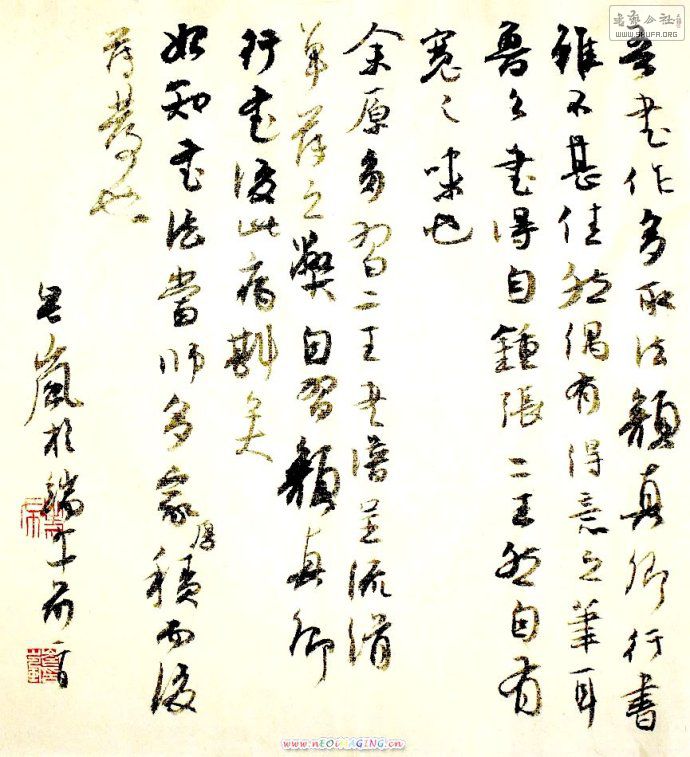 吾書作多取法顏真卿行書
雖不甚佳然偶有得意之筆耳
魯公書得自鍾張二王然自有
寬之味也
余原多習二王書譜呈流滑
單薄之弊自習顏真卿
行書後此病斟矣
如知書法當師多家厚積而後
薄發也
嵐於端午前一日
书法公社
WWW.SHUFA.ORG
www.nEOiMAGING.cn